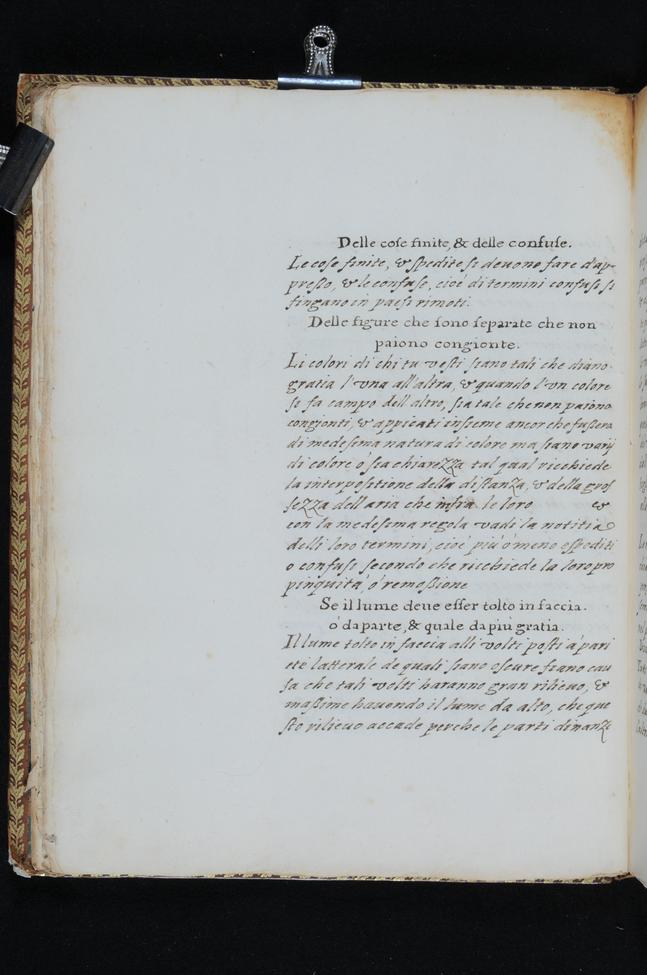 Delle cose finite, & delle confuse.
Le cose finite, & spedite si deuono fare d'ap-
presso, & le confuse, cioé di termini confusi si
fingano in paesi rimoti.
Delle figure che sono separate che non
paiono congionte.
Li colori di chi tu uesti siano tali che diano
gratia l'vna all'altra, & quando l'vn colore
si fa campo dell altro, sia tale che non paiono
congionti, & appicati insieme ancor che fussero
di medesima natura di colore ma siano varÿ
di colore ó sia chiarezza tal qual ricchiede
la interpositione della distanza, & della gros
sezza dell aria che infra le loro &
con la medesima regola vadi la notitia
delli loro termini, cioé piú ó meno espediti
o confusi secondo che ricchiede la loro pro
pinquitá, ó remossione
Se il lume deue esser tolto in faccia.
ó da parte, & quale da piú gratia.
Il lume tolto in faccia alli volti posti á pari
eté latterale de quali siano oscure siano cau
sa che tali volti haranno gran rilieuo, &
massime hauendo il lume da alto, che que
sto rilieuo accade perche le parti dinanzi